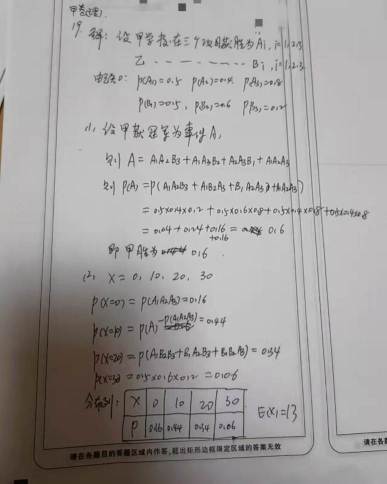 甲卷(理)
19. 解: 设甲学校在三个项目获胜为Ai, i=1,2,3
乙 ------- Bi, i=1,2,3
P(A1)=0.5 P(A2)=0.4 P(A3)=0.8
P(B1)=0.5, P(B2)=0.6 P(B3)=0.2
(1) 设甲获冠军为事件A,
则 A = A1A2B3 + A1A3B2 + A2A3B1 + A1A2A3
则 P(A) = P(A1A2B3 + A1B2A3 + B1A2A3 + A1A2A3)
= 0.5×0.4×0.2 + 0.5×0.6×0.8 + 0.5×0.4×0.8 + 0.5×0.4×0.8
= 0.04 + 0.24 + 0.16 + 0.16 = 0.6
即甲胜为 0.6
(2) X = 0, 10, 20, 30
P(X=0) = P(A1A2A3) = 0.16
P(X=10) = P(A) - P(A1A2A3) = 0.44
P(X=20) = P(A1B2B3 + B1A2B3 + B1B2A3) = 0.34
P(X=30) = 0.5×0.6×0.2 = 0.06
分布列: X 0 10 20 30
P 0.16 0.44 0.34 0.06
E(X)=13
请在各题目的答题区域内作答,超出矩形边框限定区域的答案无效
请在各